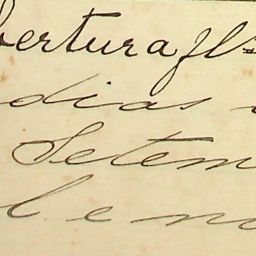 bertura fls
dias
Setem
le no